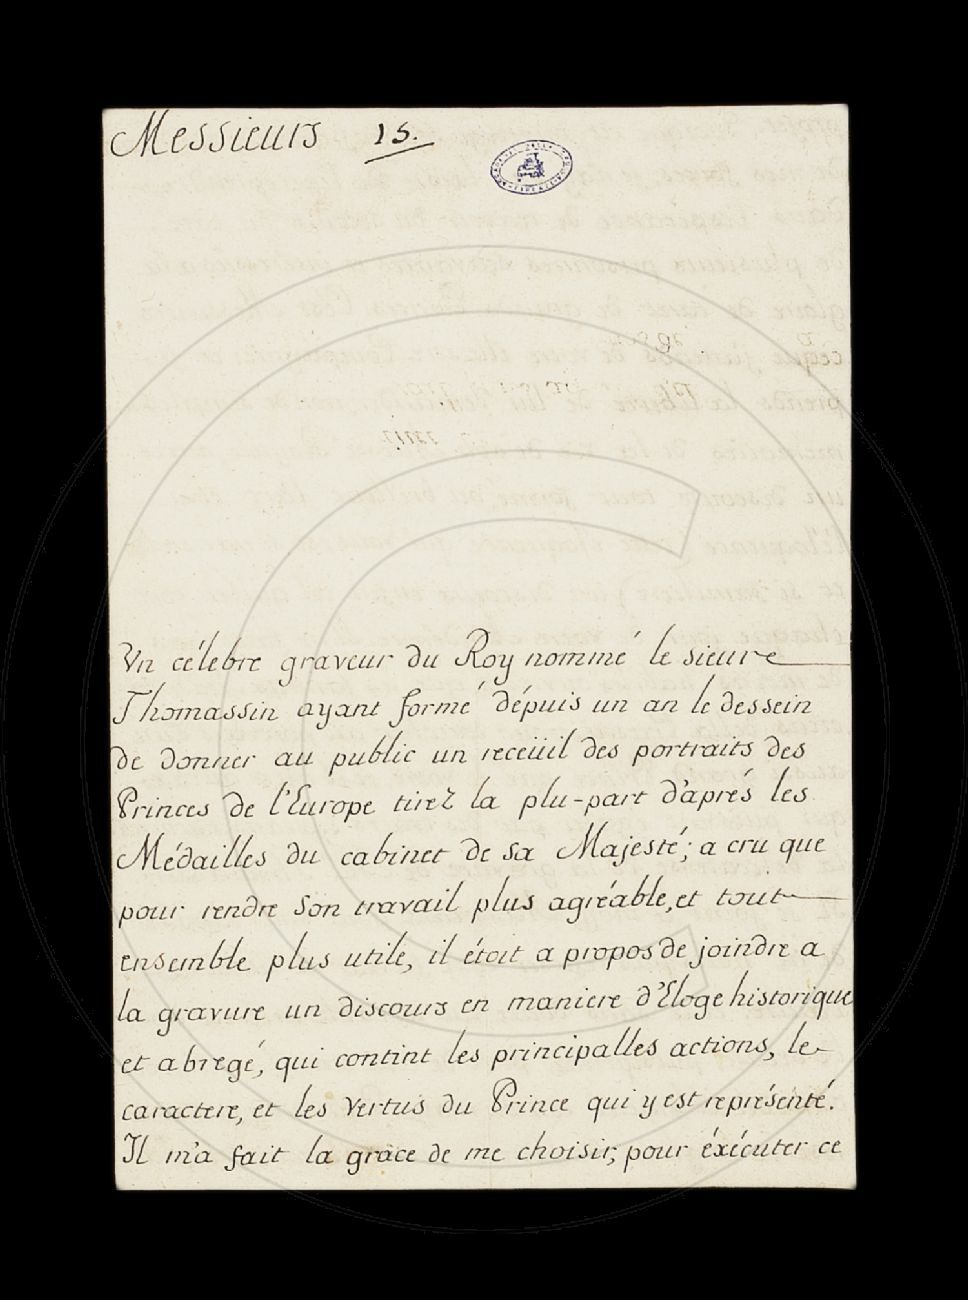 Messieurs 15.
Un célebre graveur du Roy nommé le sieure
Thomassin ayant formé dépuis un an le dessein
de donner au public un recëüil des portraits des
Princes de l'Europe tirez la plu-part d'aprés les
Médailles du cabinet de sa Majesté; a cru que
pour rendre son travail plus agréable, et tout
ensemble plus utile, il étoit a propos de joindre a
la gravure un discours en maniere d'Eloge historique
et abregé, qui contint les principalles actions, le
caractere, et les vertus du Prince qui y est représénté.
Il m'a fait la grâce de me choisir, pour éxécuter ce